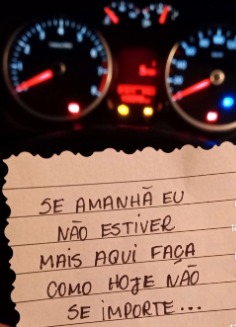 SE AMANHÃ EU
NÃO ESTIVER
MAIS AQUI FAÇA
COMO HOJE NÃO
SE IMPORTE...